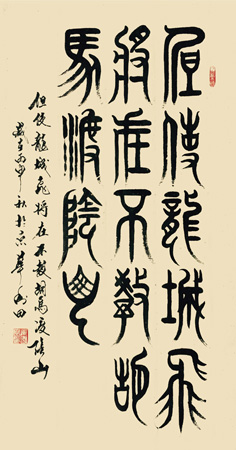 但使龍城飛
將在不教胡
馬渡陰山
但使龍城飛將在不教胡馬渡陰山
歲在丙申秋於京華田